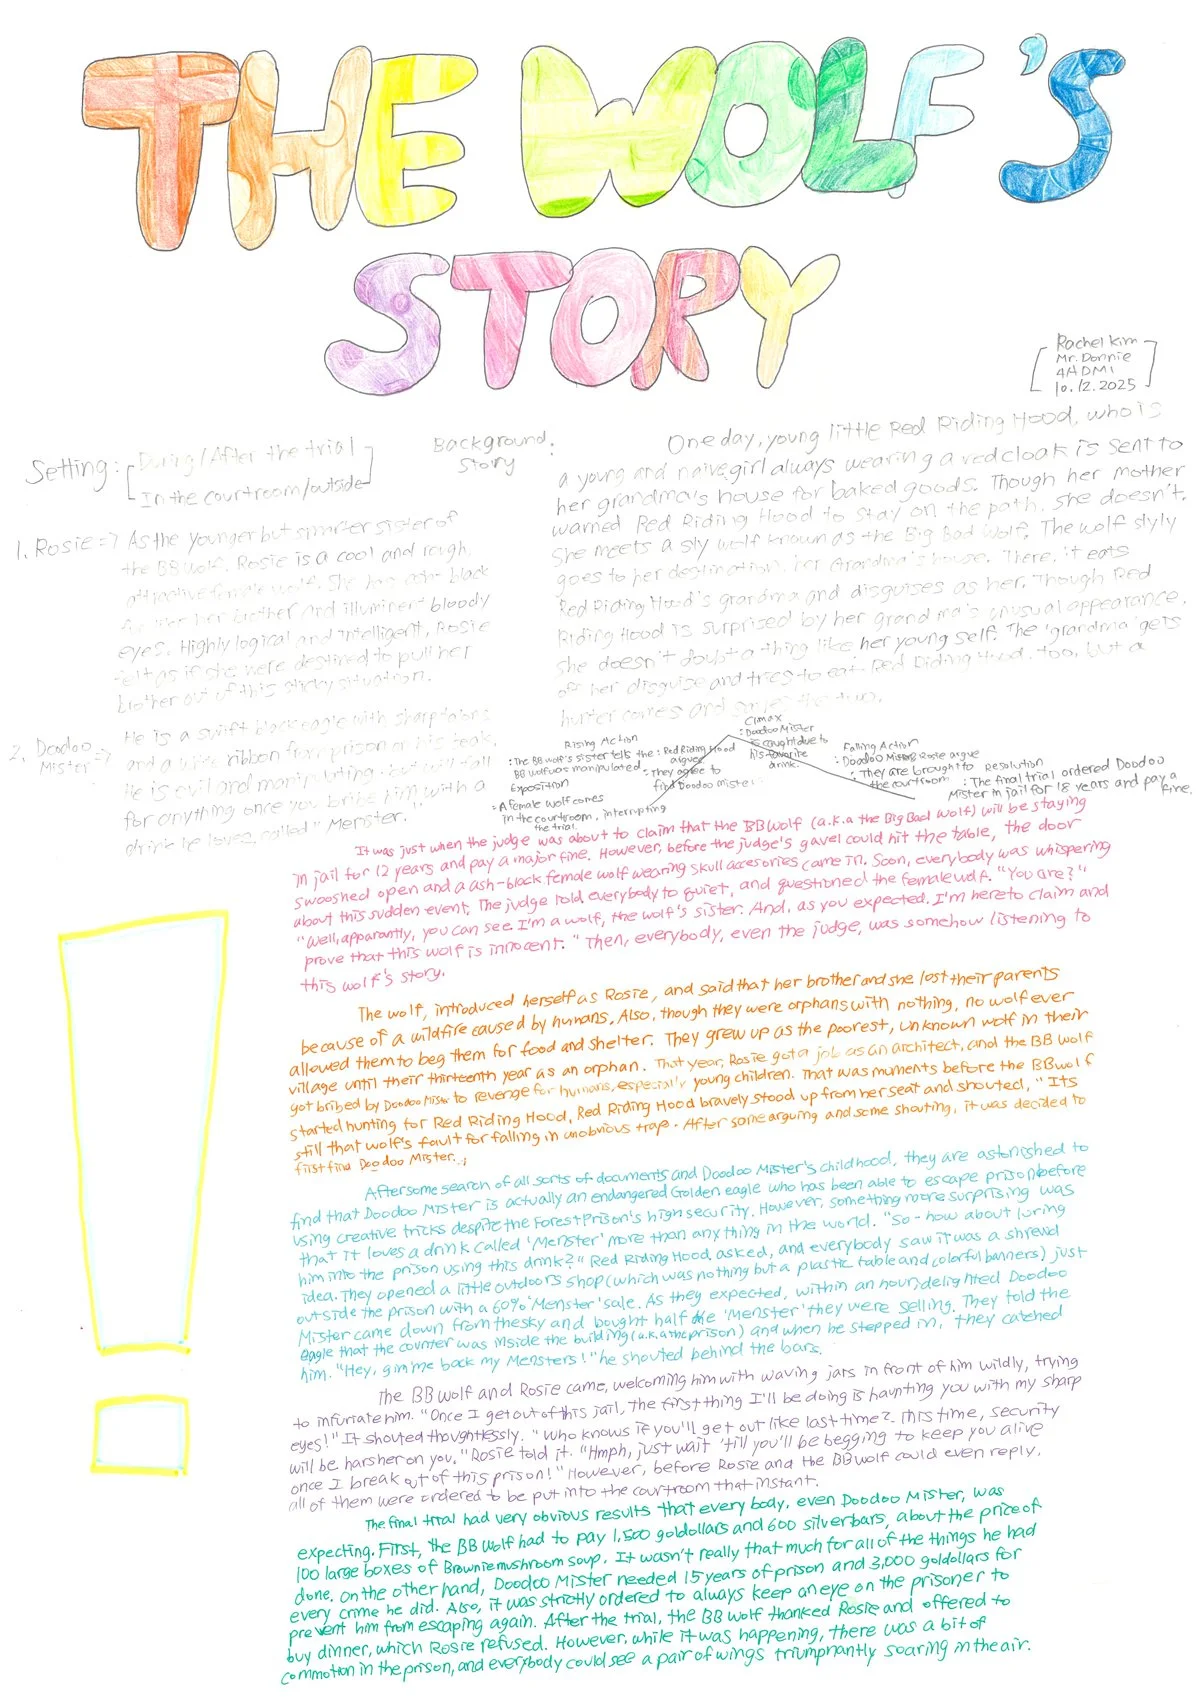 THE WOLF'S
STORY
Rachel Kim
Mr. Donnie
4HDM1
10.12.2025
Setting: During/After the trial
In the courtroom/outside
1. Rosie => As the younger but smarter sister of
the BB wolf, Rosie is a cool and rough,
attractive female wolf. She has ash-black
fur like her brother and illuminent bloody
eyes. Highly logical and intelligent, Rosie
felt as if she were destined to pull her
brother out of this sticky situation.
2. Doodoo Mister => He is a swift black eagle with sharp talons
and a white ribbon from prison on his beak.
He is evil and manipulating, but will fall
for anything once you bribe him with a
drink he loves, called "Menster.
Background Story:
One day, young little Red Riding Hood, who is
a young and naive girl always wearing a red cloak is sent to
her grandma's house for baked goods. Though her mother
warned Red Riding Hood to stay on the path, she doesn't.
She meets a sly wolf known as the Big Bad Wolf. The wolf slyly
goes to her destination, her Grandma's house. There, it eats
Red Riding Hood's grandma and disguises as her. Though Red
Riding Hood is surprised by her grandma's unusual appearance,
she doesn't doubt a thing like her young self. The 'grandma' gets
off her disguise and tries to eat Red Riding Hood, too, but a
hunter comes and saves
Exposition
: A female wolf comes
in the courtroom, interrupting
the trial.
Rising Action
: The BB wolf's sister tells the
BB wolf was manipulated.
: Red Riding Hood
argue
: They agree to
find Doodoo Mister
Climax
: Doodoo Mister
is caught due to
his favorite
drink.
Falling Action
: Doodoo Mister, Rosie argue
: They are brought to
the courtroom
Resolution
: The final trial ordered Doodoo
Mister in jail for 18 years and pay a
fine.
It was just when the judge was about to claim that the BB Wolf (a.k.a the Big Bad Wolf) will be staying
in jail for 12 years and pay a major fine. However, before the judge's gavel could hit the table, the door
swooshed open and a ash-black female wolf wearing skull accesories came in. Soon, everybody was whispering
about this sudden event. The judge told everybody to quiet, and questioned the female wolf. "You are?"
"Well, apparantly, you can see. I'm a wolf, the wolf's sister. And, as you expected, I'm here to claim and
prove that this wolf is innocent." Then, everybody, even the judge, was somehow listening to
this wolf's story.
The wolf, introduced herself as Rosie, and said that her brother and she lost their parents
because of a wildfire caused by humans. Also, though they were orphans with nothing, no wolf ever
allowed them to beg them for food and shelter. They grew up as the poorest, unknown wolf in their
village until their thirteenth year as an orphan. That year, Rosie got a job as an architect, and the BB wolf
got bribed by Doodoo Mister to revenge for humans, especially young children. That was muments before the BB wolf
started hunting for Red Riding Hood, Red Riding Hood bravely stood up from her seat and shouted, "Its
still that wolf's fault for falling in unobvious trap. After some arguing and some shouting, it was decided to
first find Doodoo Mister..
After some search of all sorts of documents and Doodoo Mister's childhood, they are astonished to
find that Doodoo Mister is actually an endangered Golden eagle who has been able to escape prison before
using creative tricks despite the Forest Prison's high security. However, something more surprising was
that it loves a drink called 'Menster' more than anything in the world. "So - how about luring
him into the prison using this drink?" Red Riding Hood asked, and everybody saw it was a shrewd
idea. They opened a little outdoors shop (which was nothing but a plastic table and colorful banners) just
outside the prison with a 60% 'Menster' sale. As they expected, within an hour, delighted Doodoo
Mister came down from the sky and bought half the 'Menster' they were selling. They told the
eagle that the counter was inside the building (a.k.a the prison) and when he stepped in, they catched
him. "Hey, gimme back my Mensters!" he shouted behind the bars.
The BB wolf and Rosie came, welcoming him with waving jars in front of him wildly, trying
to infuriate him. "Once I get out of this jail, the first thing I'll be doing is haunting you with my sharp
eyes!" It shouted thoughtlessly. "Who knows if you'll get out like last time? This time, security
will be harsher on you." Rosie told it. "Hmph, just wait 'till you'll be begging to keep you alive
once I break out of this prison!" However, before Rosie and the BB wolf could even reply,
all of them were ordered to be put into the courtroom that instant.
The final trial had very obvious results that every body, even Doodoo Mister, was
expecting. First, the BB Wolf had to pay 1,500 goldollars and 600 silverbars, about the price of
100 large boxes of Brownie mushroom soup. It wasn't really that much for all of the things he had
done. On the other hand, Doodoo Mister needed 15 years of prison and 3,000 goldollars for
every crime he did. Also, it was strictly ordered to always keep an eye on the prisoner to
prevent him from escaping again. After the trial, the BB wolf thanked Rosie and offered to
buy dinner, which Rosie refused. However, while it was happening, there was a bit of
commotion in the prison, and everybody could see a pair of wings triumphantly soaring in the air.